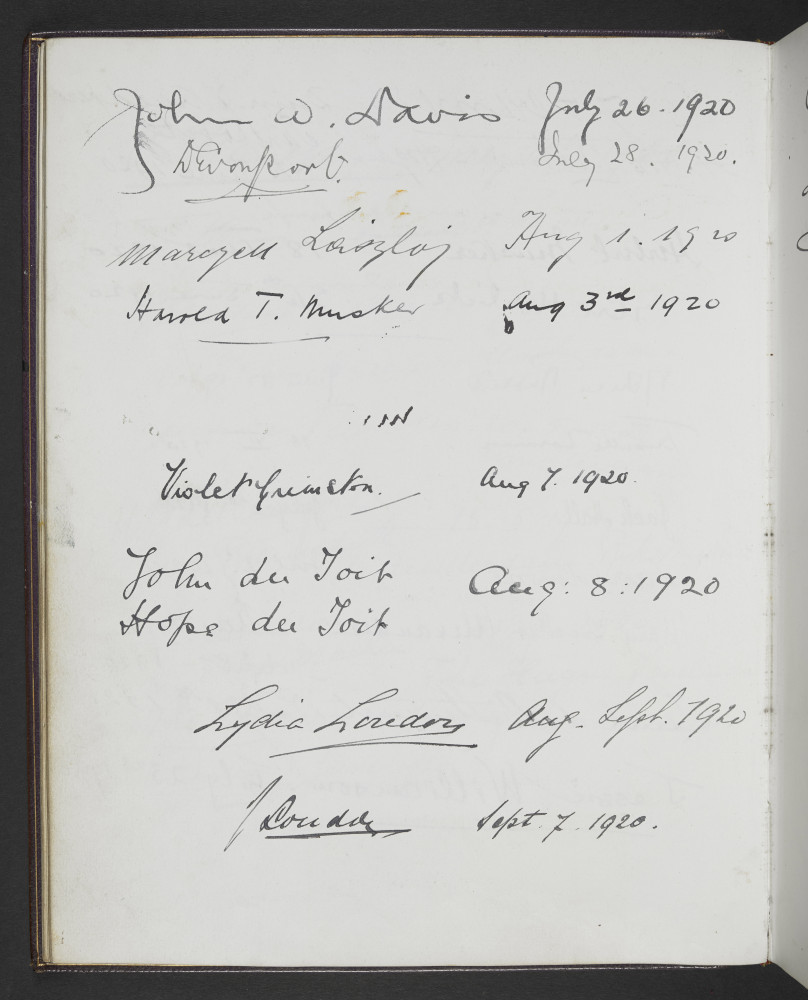 John W. Davis July 26. 1920
Devonport. July 28. 1920.
Marczell László Aug 1. 1920
Harold T. Musker Aug 3rd 1920
Violet Grimston. Aug 7. 1920.
John du Toit Aug: 8: 1920
Hope du Toit
Lydia Loudon Aug. Sept. 1920
J Loudon Sept. 7. 1920.